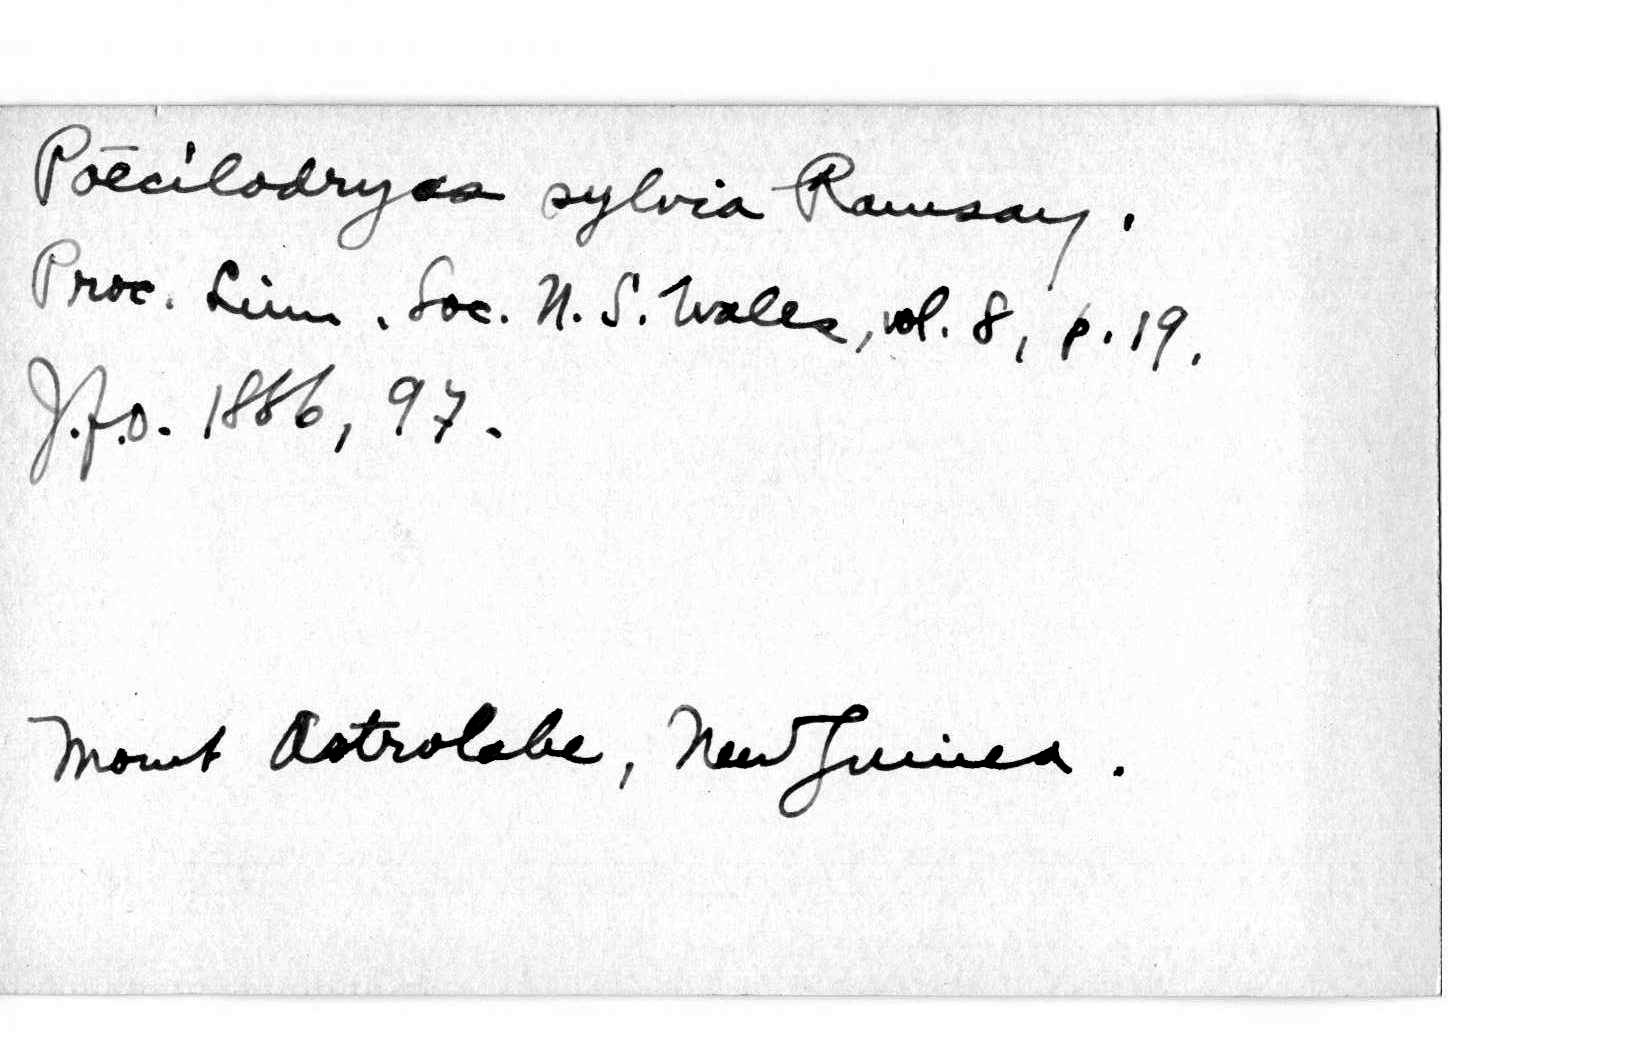 Poecilodryas sylvia Ramsay.
Proc. Linn. Soc. N. S. Wales, vol. 8, p. 19.
J.f.O. 1886, 97.
Mount Astrolabe, New Guinea.